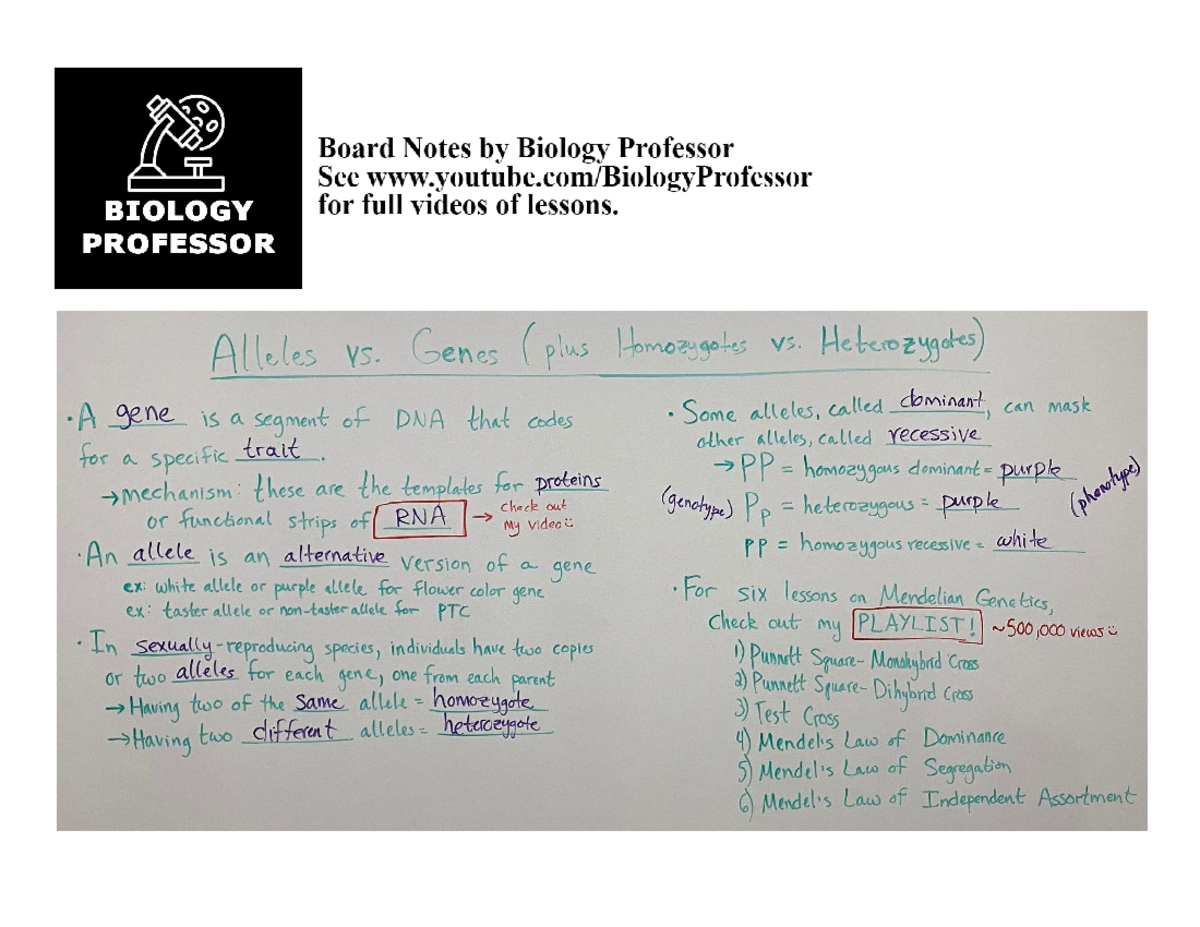 BIOLOGY
PROFESSOR
Board Notes by Biology Professor
See www.youtube.com/BiologyProfessor
for full videos of lessons.
Alleles vs. Genes (plus Homozygotes vs. Heterozygotes)
· A gene is a segment of DNA that codes
for a specific trait.
→ mechanism: these are the templates for proteins
or functional strips of RNA → check out
my video :)
· An allele is an alternative version of a gene
ex: white allele or purple allele for flower color gene
ex: taster allele or non-taster allele for PTC
· In sexually-reproducing species, individuals have two copies
or two alleles for each gene, one from each parent
→ Having two of the same allele = homozygote
→ Having two different alleles = heterozygote
· Some alleles, called dominant, can mask
other alleles, called recessive
→ PP = homozygous dominant = purple
(genotype) Pp = heterozygous = purple (phenotype)
pp = homozygous recessive = white
· For six lessons on Mendelian Genetics,
Check out my PLAYLIST! ~500,000 views :)
1) Punnett Square- Monohybrid Cross
2) Punnett Square- Dihybrid Cross
3) Test Cross
4) Mendel's Law of Dominance
5) Mendel's Law of Segregation
6) Mendel's Law of Independent Assortment